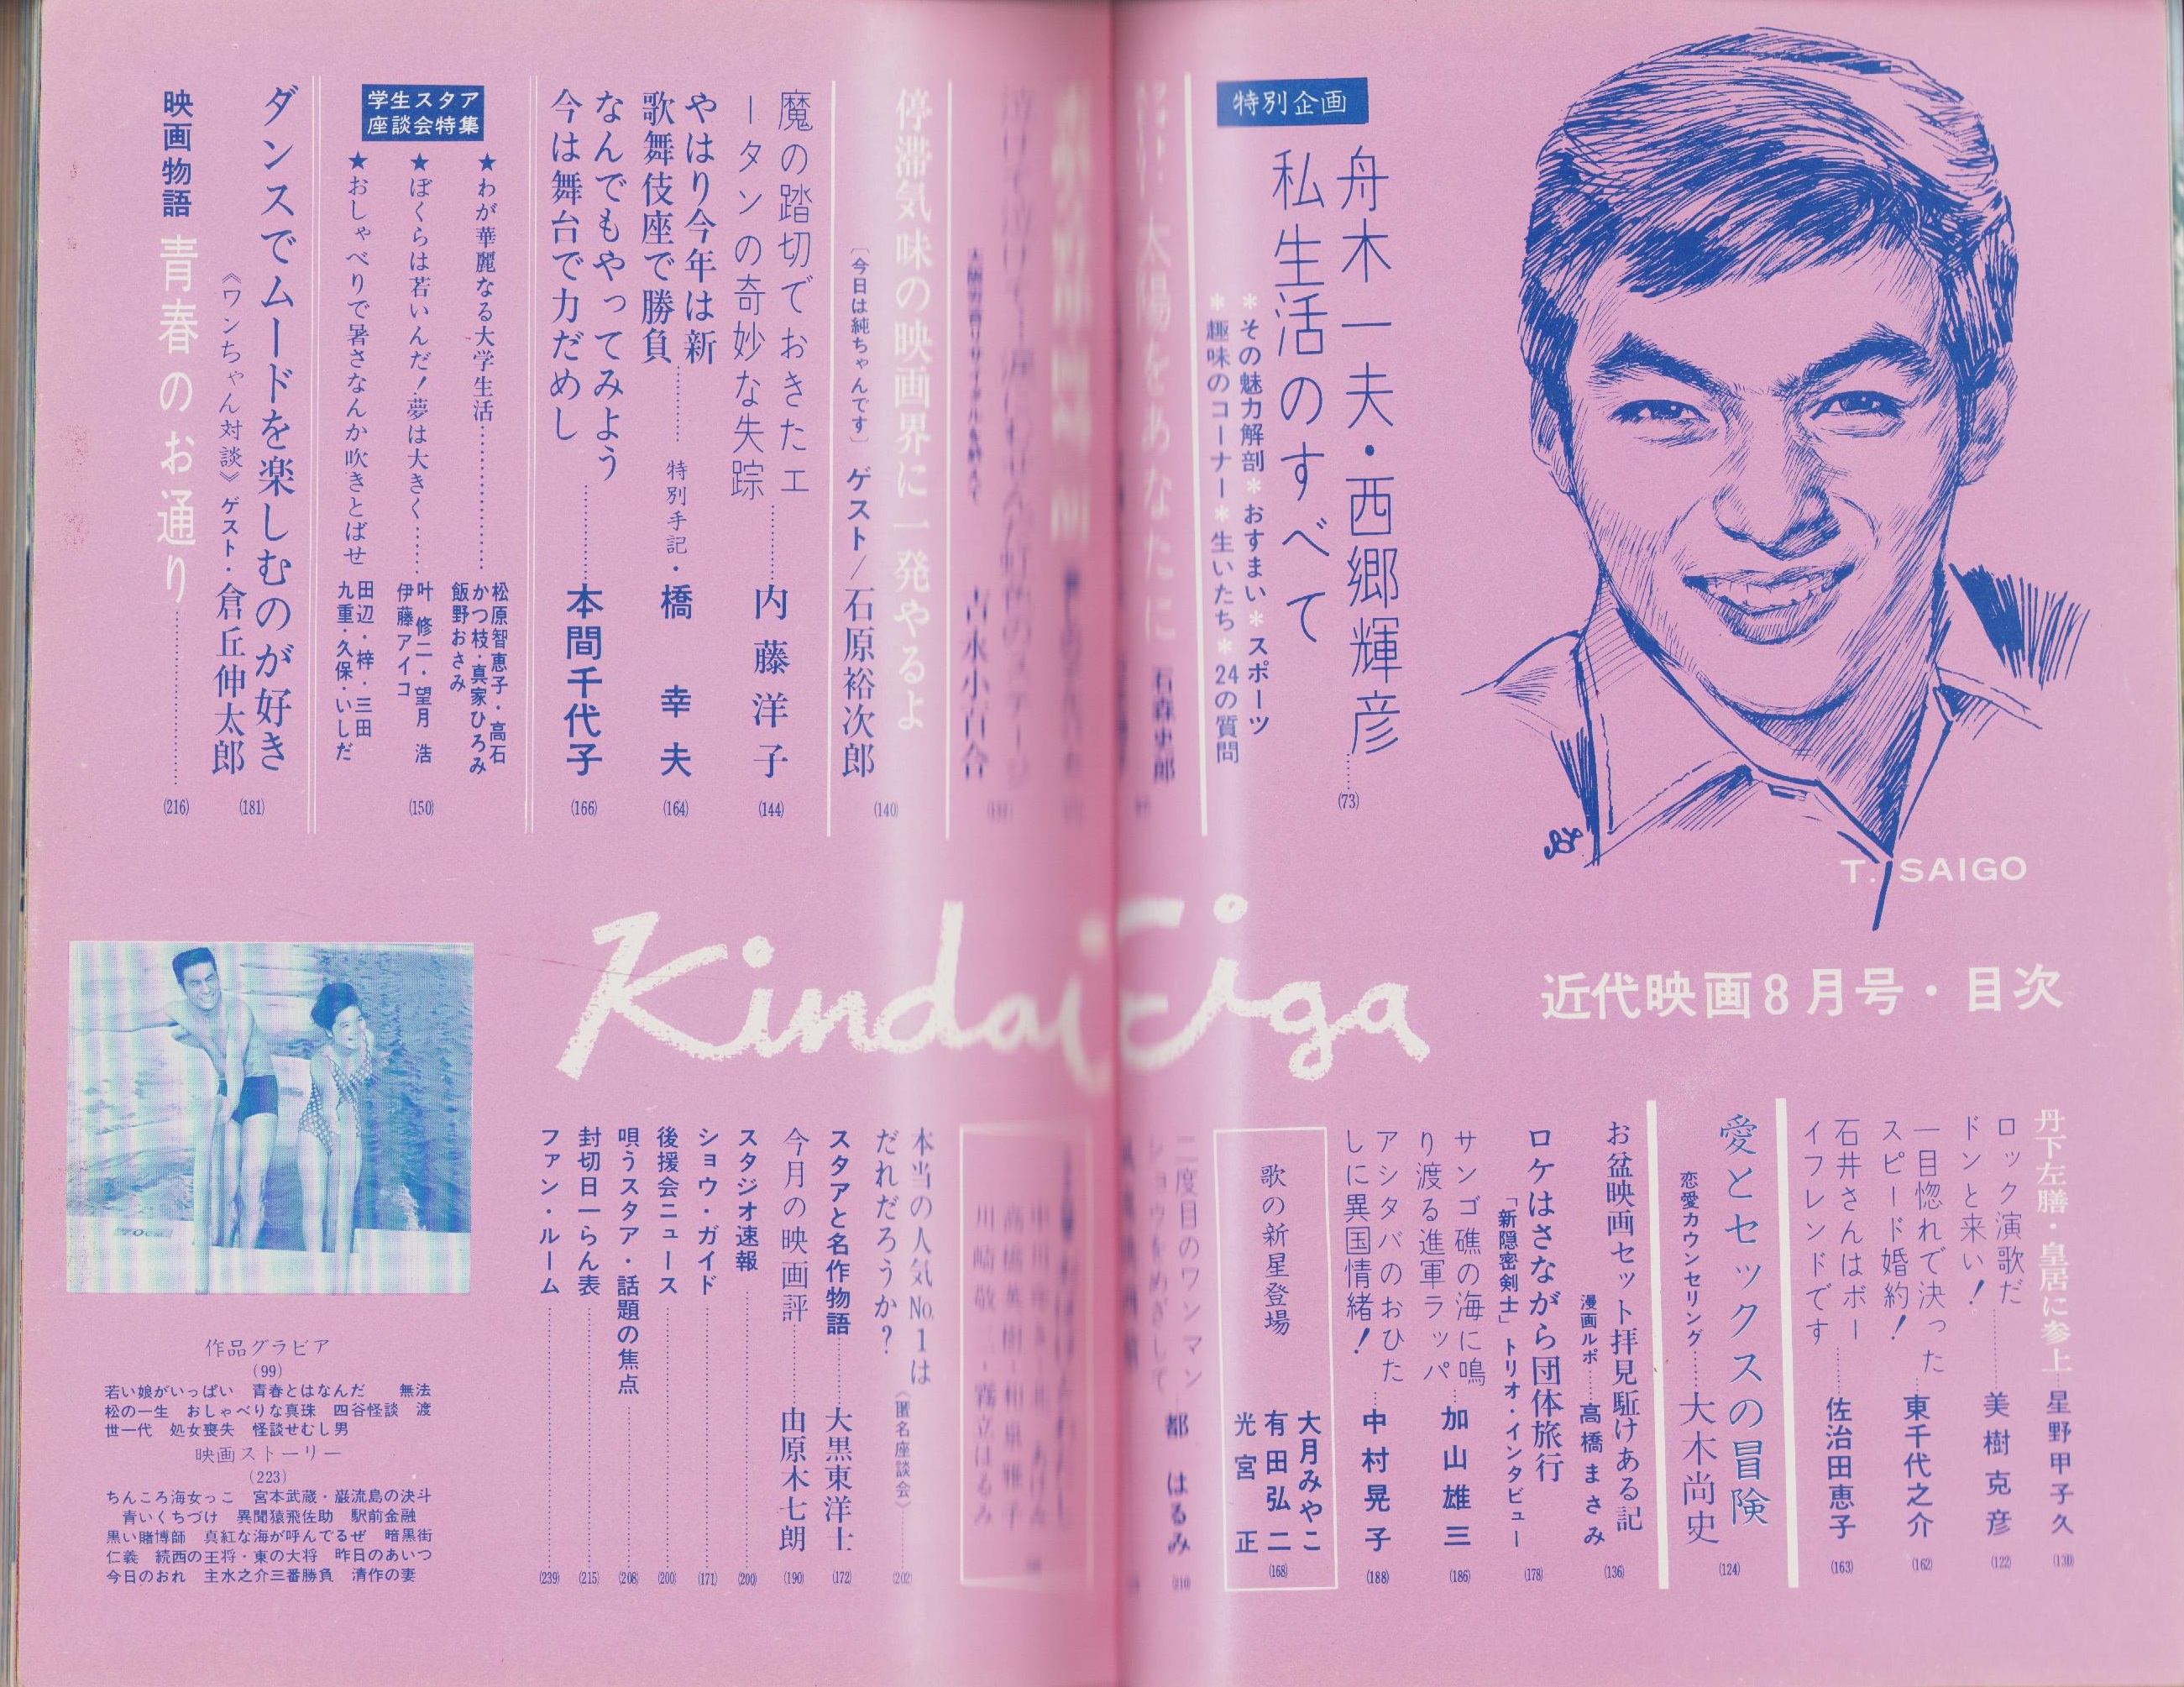 近代映画8月号・目次
Kindai Eiga
T. SAIGO
特別企画
舟木一夫・西郷輝彦
私生活のすべて
(73)
*その魅力解剖*おすまい*スポーツ
*趣味のコーナー*生いたち*24の質問
太陽をあなたに
石森史郎
吉永小百合
停滞気味の映画界に一発やるよ
〔今日は純ちゃんです〕ゲスト/石原裕次郎
(140)
魔の踏切でおきたエ
ータンの奇妙な失踪
内藤洋子
(144)
やはり今年は新
歌舞伎座で勝負
特別手記・橋幸夫
(164)
なんでもやってみよう
今は舞台で力だめし
本間千代子
(166)
学生スタア
座談会特集
★わが華麗なる大学生活
松原智恵子・高石
かつ枝・真家ひろみ
飯野おさみ
★ぼくらは若いんだ!夢は大きく
叶修二・望月浩
伊藤アイコ
★おしゃべりで暑さなんか吹きとばせ
田辺・梓・三田
九重・久保・いしだ
(150)
ダンスでムードを楽しむのが好き
《ワンちゃん対談》ゲスト・倉丘伸太郎
(181)
映画物語 青春のお通り
(216)
丹下左膳・皇居に参上
星野甲子久
(130)
ロック演歌だ
ドンと来い!
美樹克彦
(122)
一目惚れで決った
スピード婚約!
東千代之介
(162)
石井さんはボー
イフレンドです
佐治田恵子
(163)
愛とセックスの冒険
恋愛カウンセリング
大木尚史
(124)
お盆映画セット拝見駈けある記
漫画ルポ
高橋まさみ
(136)
ロケはさながら団体旅行
「新隠密剣士」トリオ・インタビュー
(178)
サンゴ礁の海に鳴
り渡る進軍ラッパ
加山雄三
(186)
アシタバのおひた
しに異国情緒!
中村晃子
(188)
歌の新星登場
大月みやこ
有田弘二
光宮正
(168)
二度目のワンマン
ショウをめざして
都はるみ
(210)
高橋英樹・和泉雅子
川崎敬二・霧立はるみ
本当の人気No.1は
だれだろうか?
〈匿名座談会〉
(202)
スタアと名作物語
大黒東洋士
(172)
今月の映画評
由原木七朗
(190)
スタジオ速報
(200)
ショウ・ガイド
(171)
後援会ニュース
(200)
唄うスタア・話題の焦点
(208)
封切日一らん表
(215)
ファン・ルーム
(239)
作品グラビア
(99)
若い娘がいっぱい 青春とはなんだ 無法
松の一生 おしゃべりな真珠 四谷怪談 渡
世一代 処女喪失 怪談せむし男
映画ストーリー
(223)
ちんころ海女っこ 宮本武蔵・巌流島の決斗
青いくちづけ 異聞猿飛佐助 駅前金融
黒い賭博師 真紅な海が呼んでるぜ 暗黒街
仁義 続西の王将・東の大将 昨日のあいつ
今日のおれ 主水之介三番勝負 清作の妻